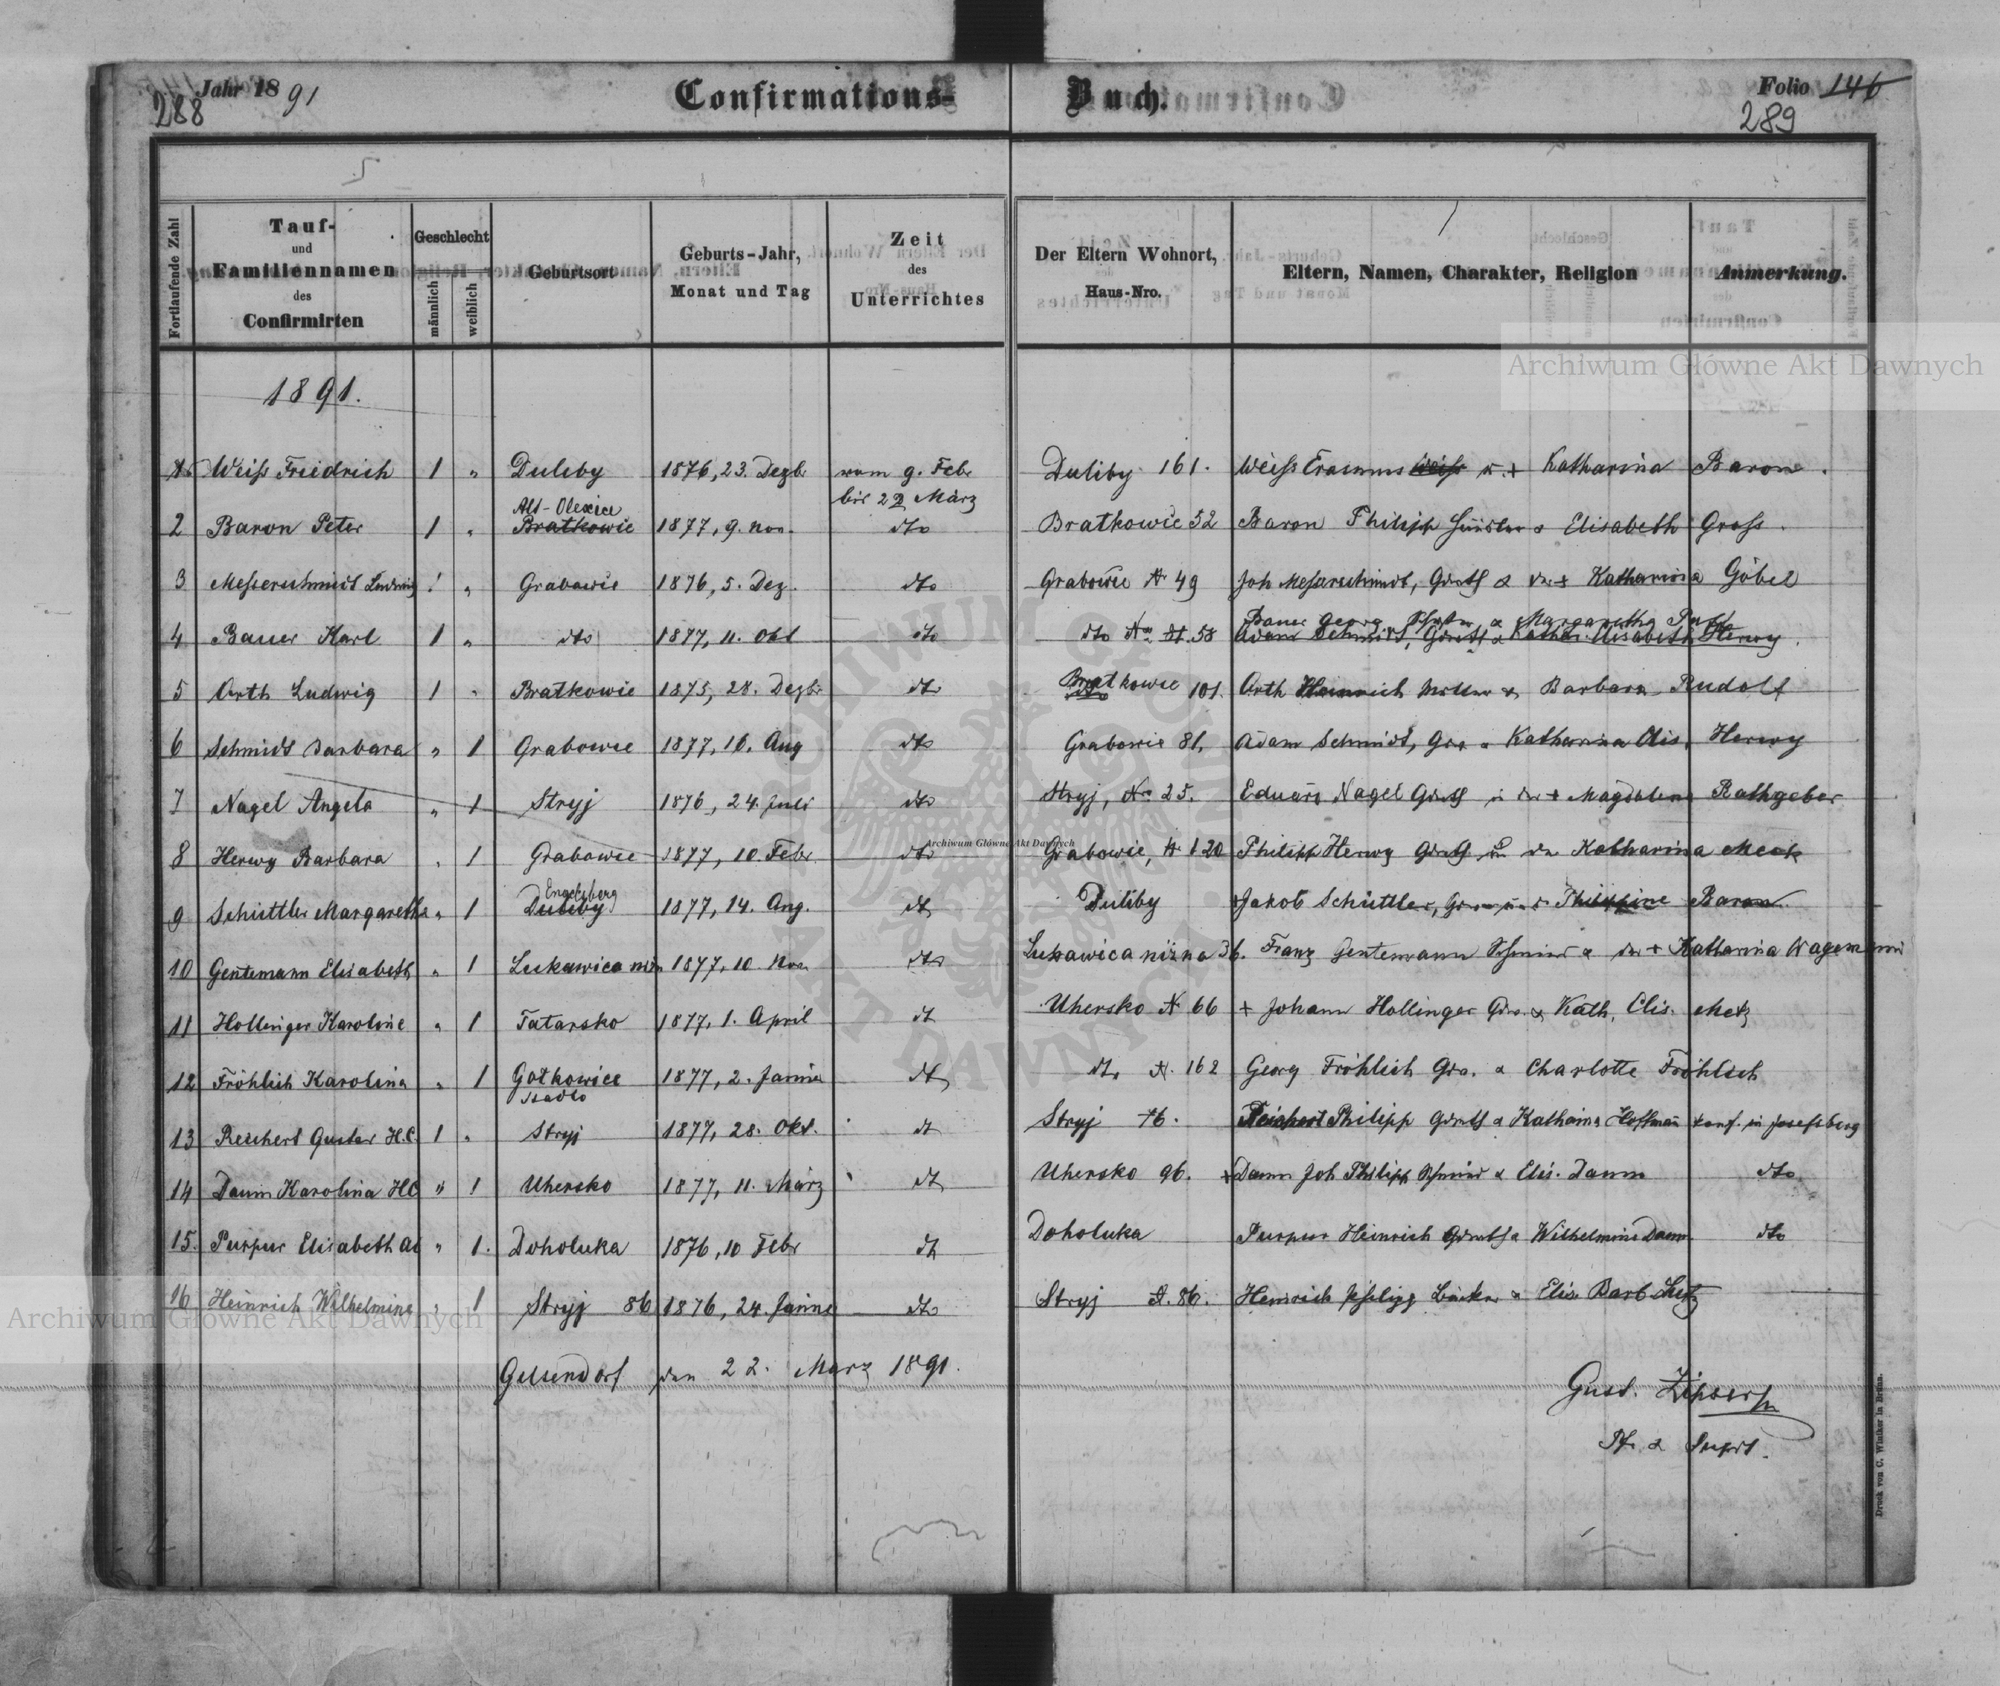 Jahr 1891
288
Confirmations-Buch.
Folio 146
289
Fortlaufende Zahl
Tauf- und Familiennamen des Confirmirten
Geschlecht
männlich
weiblich
Geburtsort
Geburts-Jahr, Monat und Tag
Zeit des Unterrichtes
Der Eltern Wohnort, Haus-Nro.
Eltern, Namen, Charakter, Religion
Anmerkung.
1891.
1. Weiss Friedrich 1 " Duliby 1876, 23. Dezb vom 9. Febr bis 22 März Duliby 161. Weiss Erasmus Weiss u. + Katharina Baron.
2 Baron Peter 1 " Alt-Olexice Bratkowie 1877, 9. Nov. dto Bratkowie 52 Baron Philipp & Elisabeth Gross.
3 Messerschmidt Ludwig 1 " Grabowie 1876, 5. Dez. dto Grabowie N 49 Joh Messerschmidt, Grdth & der + Katharina Göbel
4 Bauer Karl 1 " dto 1877, 11. Okt dto dto No 58 Bauer Georg & Margaretha
Adam Schmidt, Grdth & Kathar. Elisabeth Herwy.
5 Orth Ludwig 1 " Bratkowie 1875, 28. Dezbr dto Bratkowie 101. Orth Heinrich & Barbara Rudolf
6 Schmidt Barbara " 1 Grabowie 1877, 16. Aug dto Grabowie 81, Adam Schmidt, Grd. & Katharina Elis. Herwy
7 Nagel Angela " 1 Stryj 1876, 24. Juli dto Stryj, No 25. Eduard Nagel Grdth u der + Magdalena Rathgeber
8 Herwy Barbara " 1 Grabowie 1877, 10 Febr. dto Grabowie, N 120 Philipp Herwy Grdth u der Katharina Meck
9 Schüttler Margaretha " 1 Engelsberg Duliby 1877, 14. Aug. dto Duliby Jakob Schüttler, Philippine Baron
10 Gentemann Elisabeth " 1 Lukawica niz. 1877, 10 Nov dto Lukawica nizna 36. Franz Gentemann & der + Katharina Wagemann
11 Hollinger Karoline " 1 Tatarsko 1877, 1. April dto Uhersko N 66 + Johann Hollinger Grd. & Kath. Elis. Metz
12 Fröhlich Karolina " 1 Gotkowice 1877, 2. Januar dto dto N. 162 Georg Fröhlich Grd. & Charlotte Fröhlich
13 Reichert Gustav H.C. 1 " Stryj 1877, 28. Okt. dto Stryj 76. Reichert Philipp Grdth & Katharina Hoffmann konf. in Josefsberg
14 Daum Karolina HC " 1 Uhersko 1877, 11. März dto Uhersko 96. + Daum Joh Philipp & Elis. Daum dto
15. Purpur Elisabeth " 1. Doholuka 1876, 10 Febr dto Doholuka Purpur Heinrich Grdth & Wilhelmine Daum dto
16 Heinrich Wilhelmine " 1 Stryj 86 1876, 24. Januar dto Stryj N. 86. Heinrich Philipp Bäcker & Elis. Barb.
Gelsendorf den 22. März 1891.
Gust. Zipser
Pfr. & Supdt.
Druck von C. Winiker in Brünn.
Archiwum Główne Akt Dawnych
Archiwum Główne Akt Dawnych
Archiwum Główne Akt Dawnych
ARCHIWUM GŁÓWNE AKT DAWNYCH